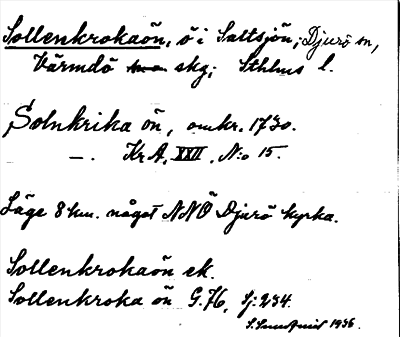 Sollenkrokaön, ö i Saltsjön, Djurö sn,
Värmdö skg; Sthlms l.
Solnkrika ön, omkr. 1730.
—. Kr A, XXII, N:o 15.
Läge 8 km. något NNÖ Djurö kyrka.
Sollenkrokaön ek.
Sollenkroka ön G.76, Sj:234.
1936.